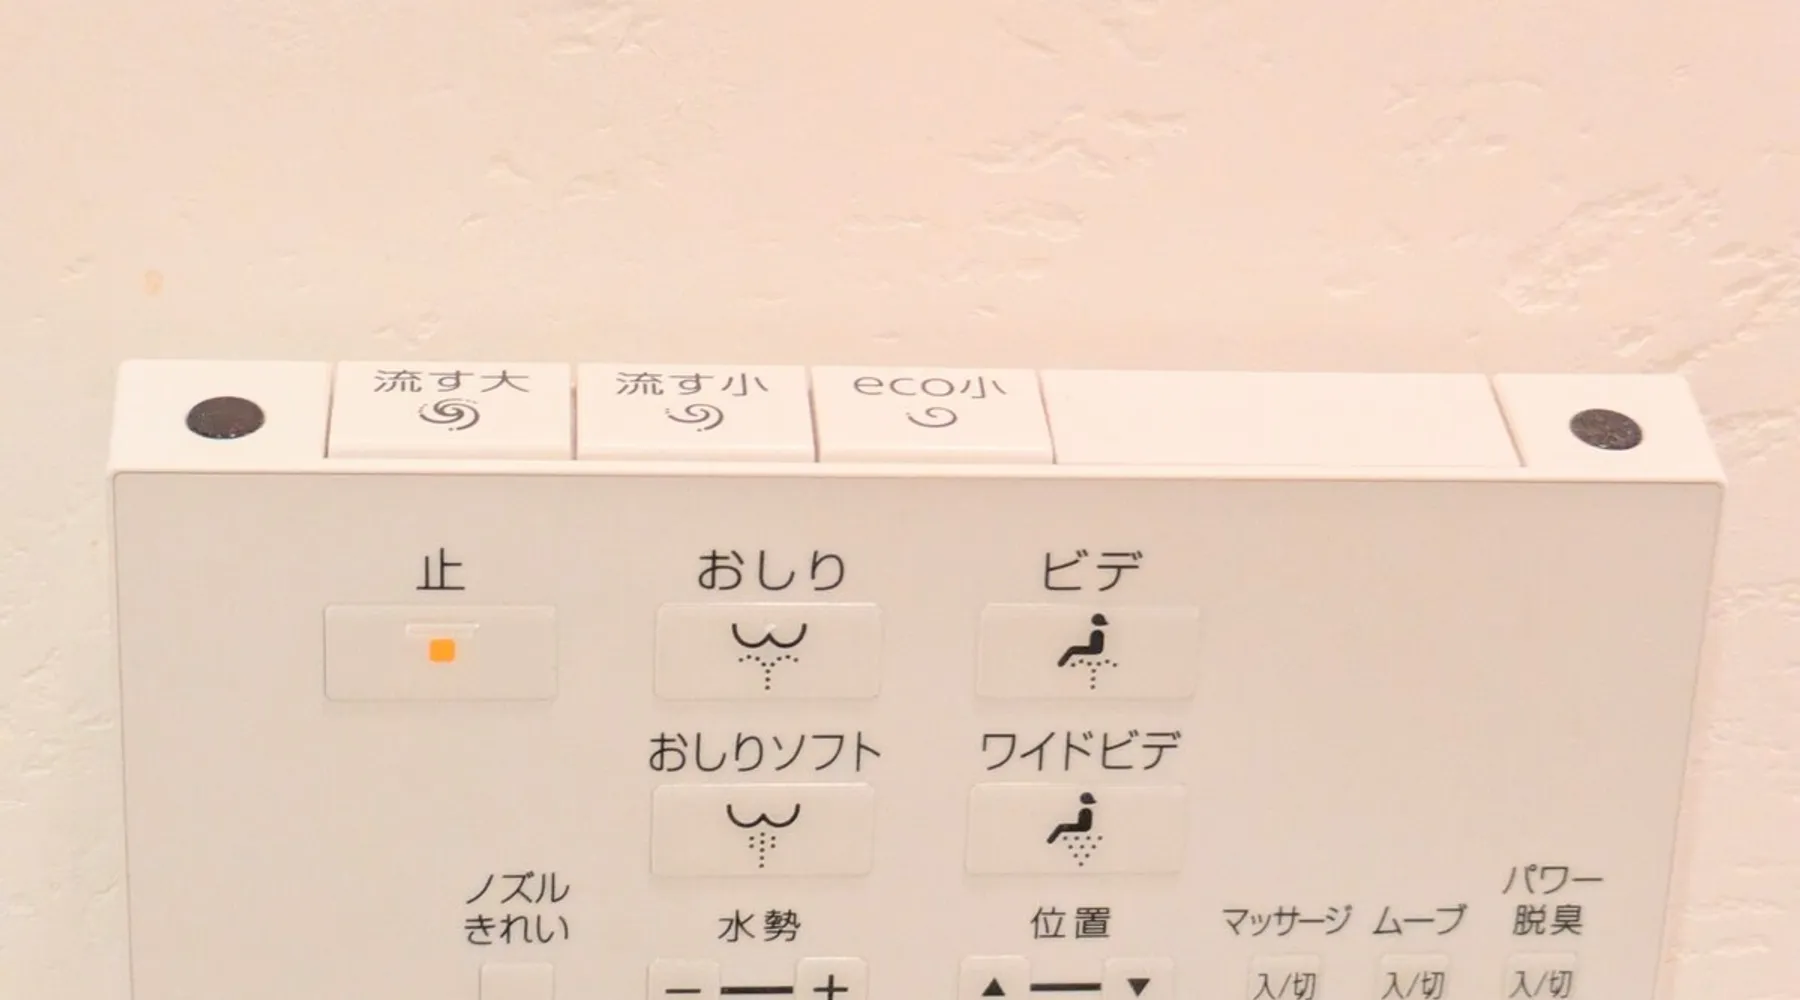 流す大 流す小 eco小
止 おしり ビデ
おしりソフト ワイドビデ
ノズル
きれい
水勢 位置 マッサージ ムーブ
パワー
脱臭
− + ▲ ▼ 入/切 入/切 入/切